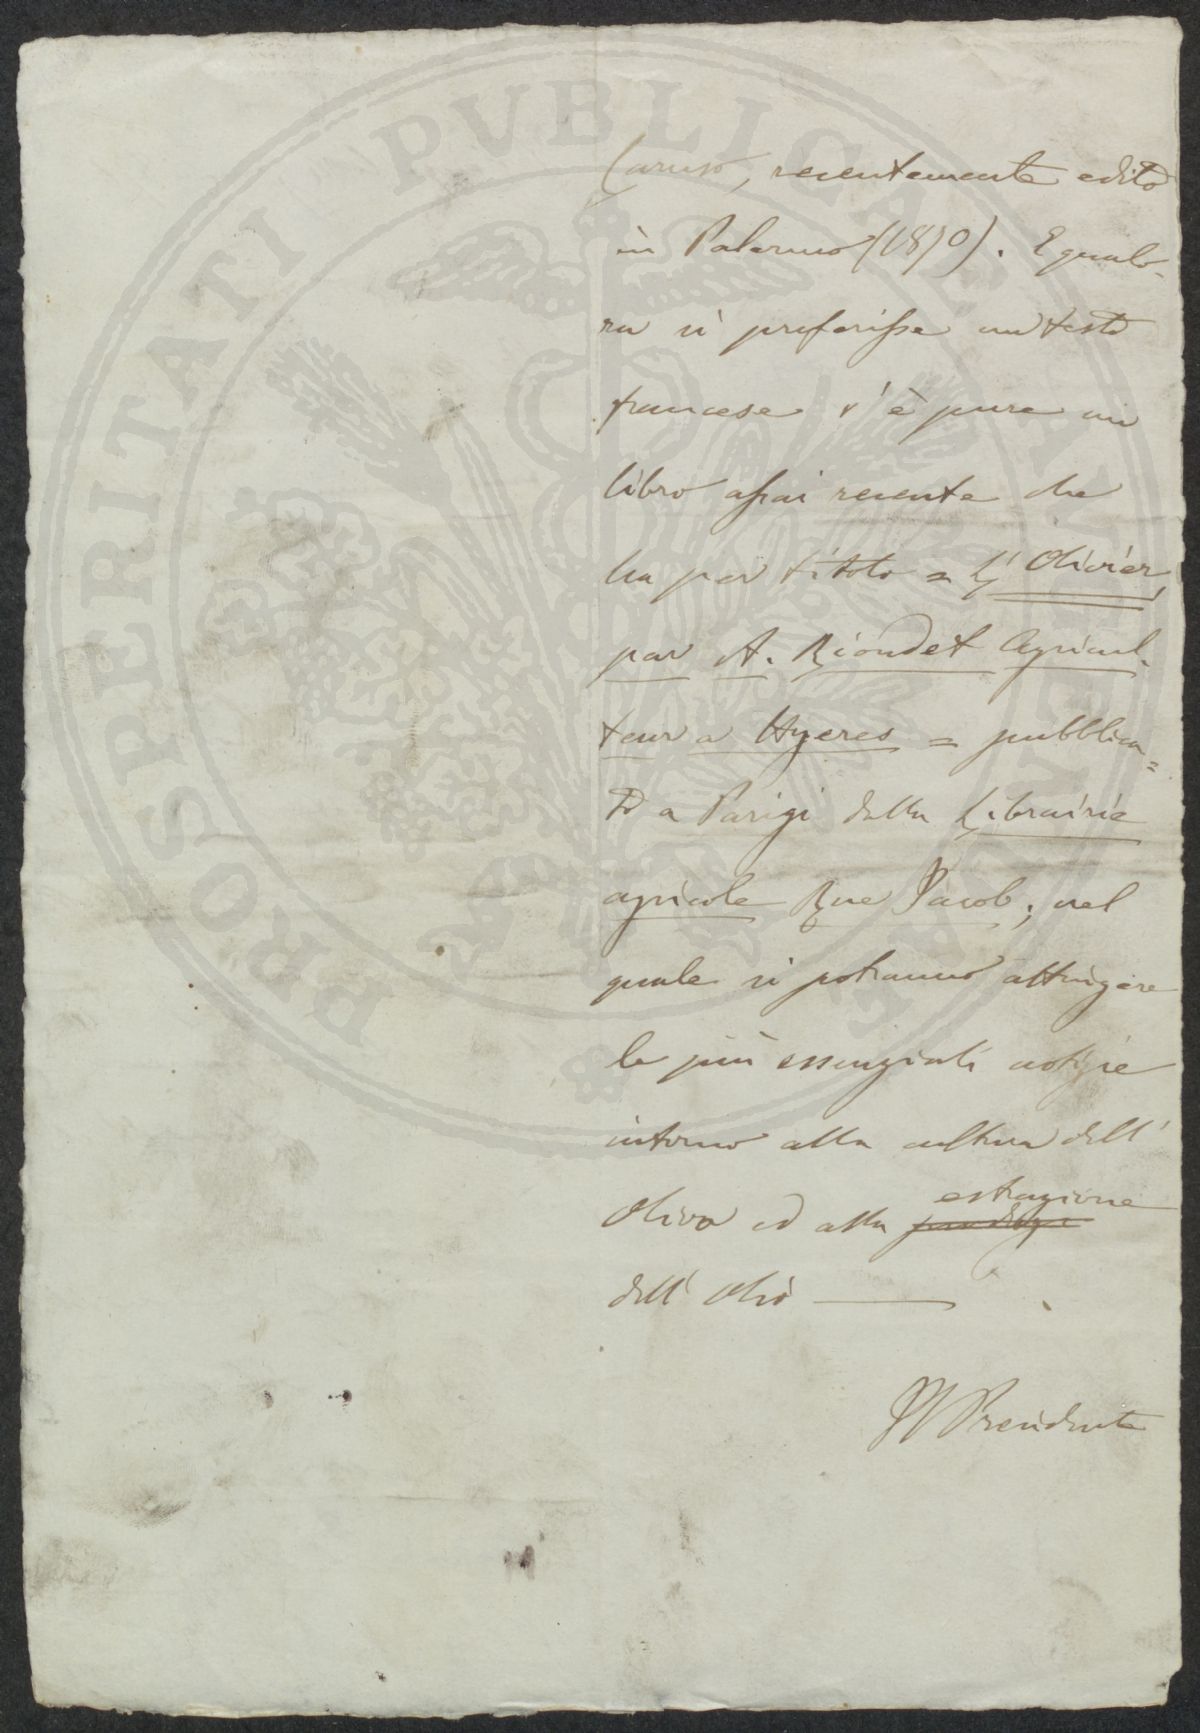 Caruso, recentemente edito
in Palermo (1870). E qualo-
ra si preferisse un testo
francese v'è pure un
libro assai recente che
ha per titolo = L'Olivier,
par A. Riondet Agricul-
teur a Hyeres = pubblica=
to a Parigi dalla Librairie
agricole Rue Jacob; nel
quale si potranno attingere
le più essenziali notizie
intorno alla cultura dell'
Olivo ed alla estrazione
dell'Olio
Il Presidente
PROSPERITATI PVBLICAE